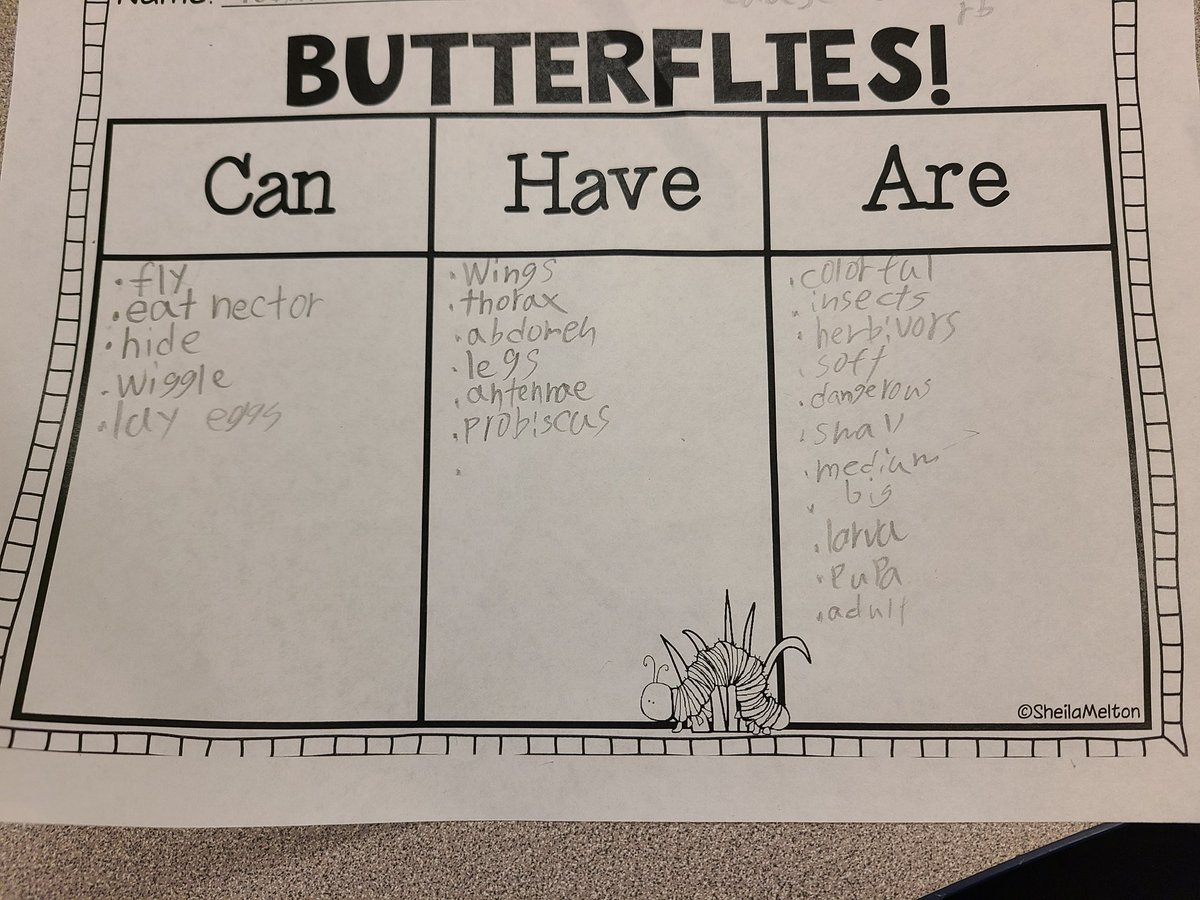 Name:
BUTTERFLIES!
Can
Have
Are
• fly
• eat nector
• hide
• wiggle
• lay eggs
• Wings
• thorax
• abdomen
• legs
• antennae
• Probiscus
•
• colorful
• insects
• herbivors
• soft
• dangerous
•
• medium
• big
• larva
• PuPa
• adult
©SheilaMelton